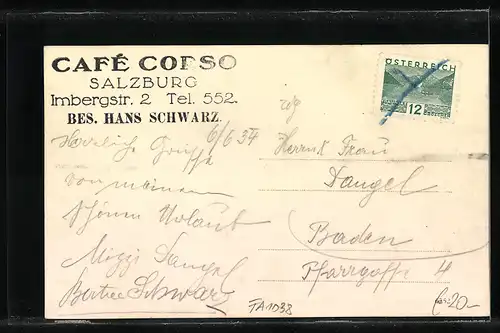 CAFÉ CORSO
SALZBURG
Imbergstr. 2 Tel. 552.
BES. HANS SCHWARZ.
ÖSTERREICH
12
6/6 34
Herzliche Grüße
von meinem
schönen Urlaub
Mizzi Dangel
Schwarz
Herrn u Frau
Dangel
Baden
Pfarrgasse 4
TA1038
20-